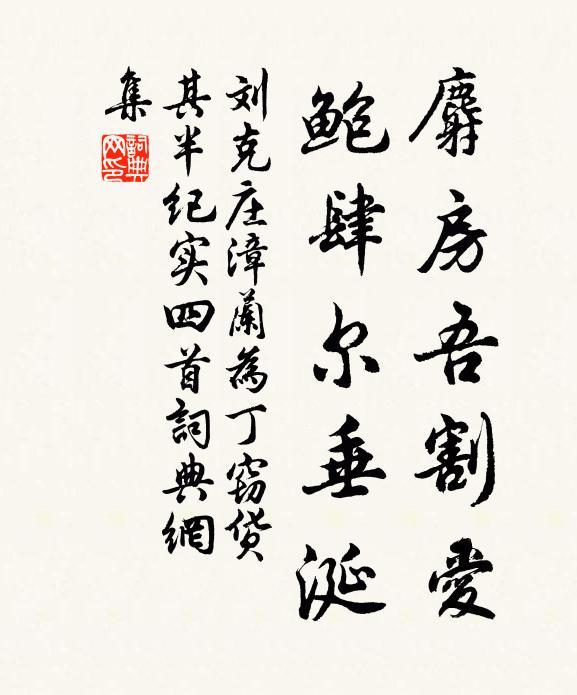 麝房吾割愛
鲍肆尔垂涎
刘克庄漳蘭為丁窃貨
其半纪实四首詞典網
集
詞典網印